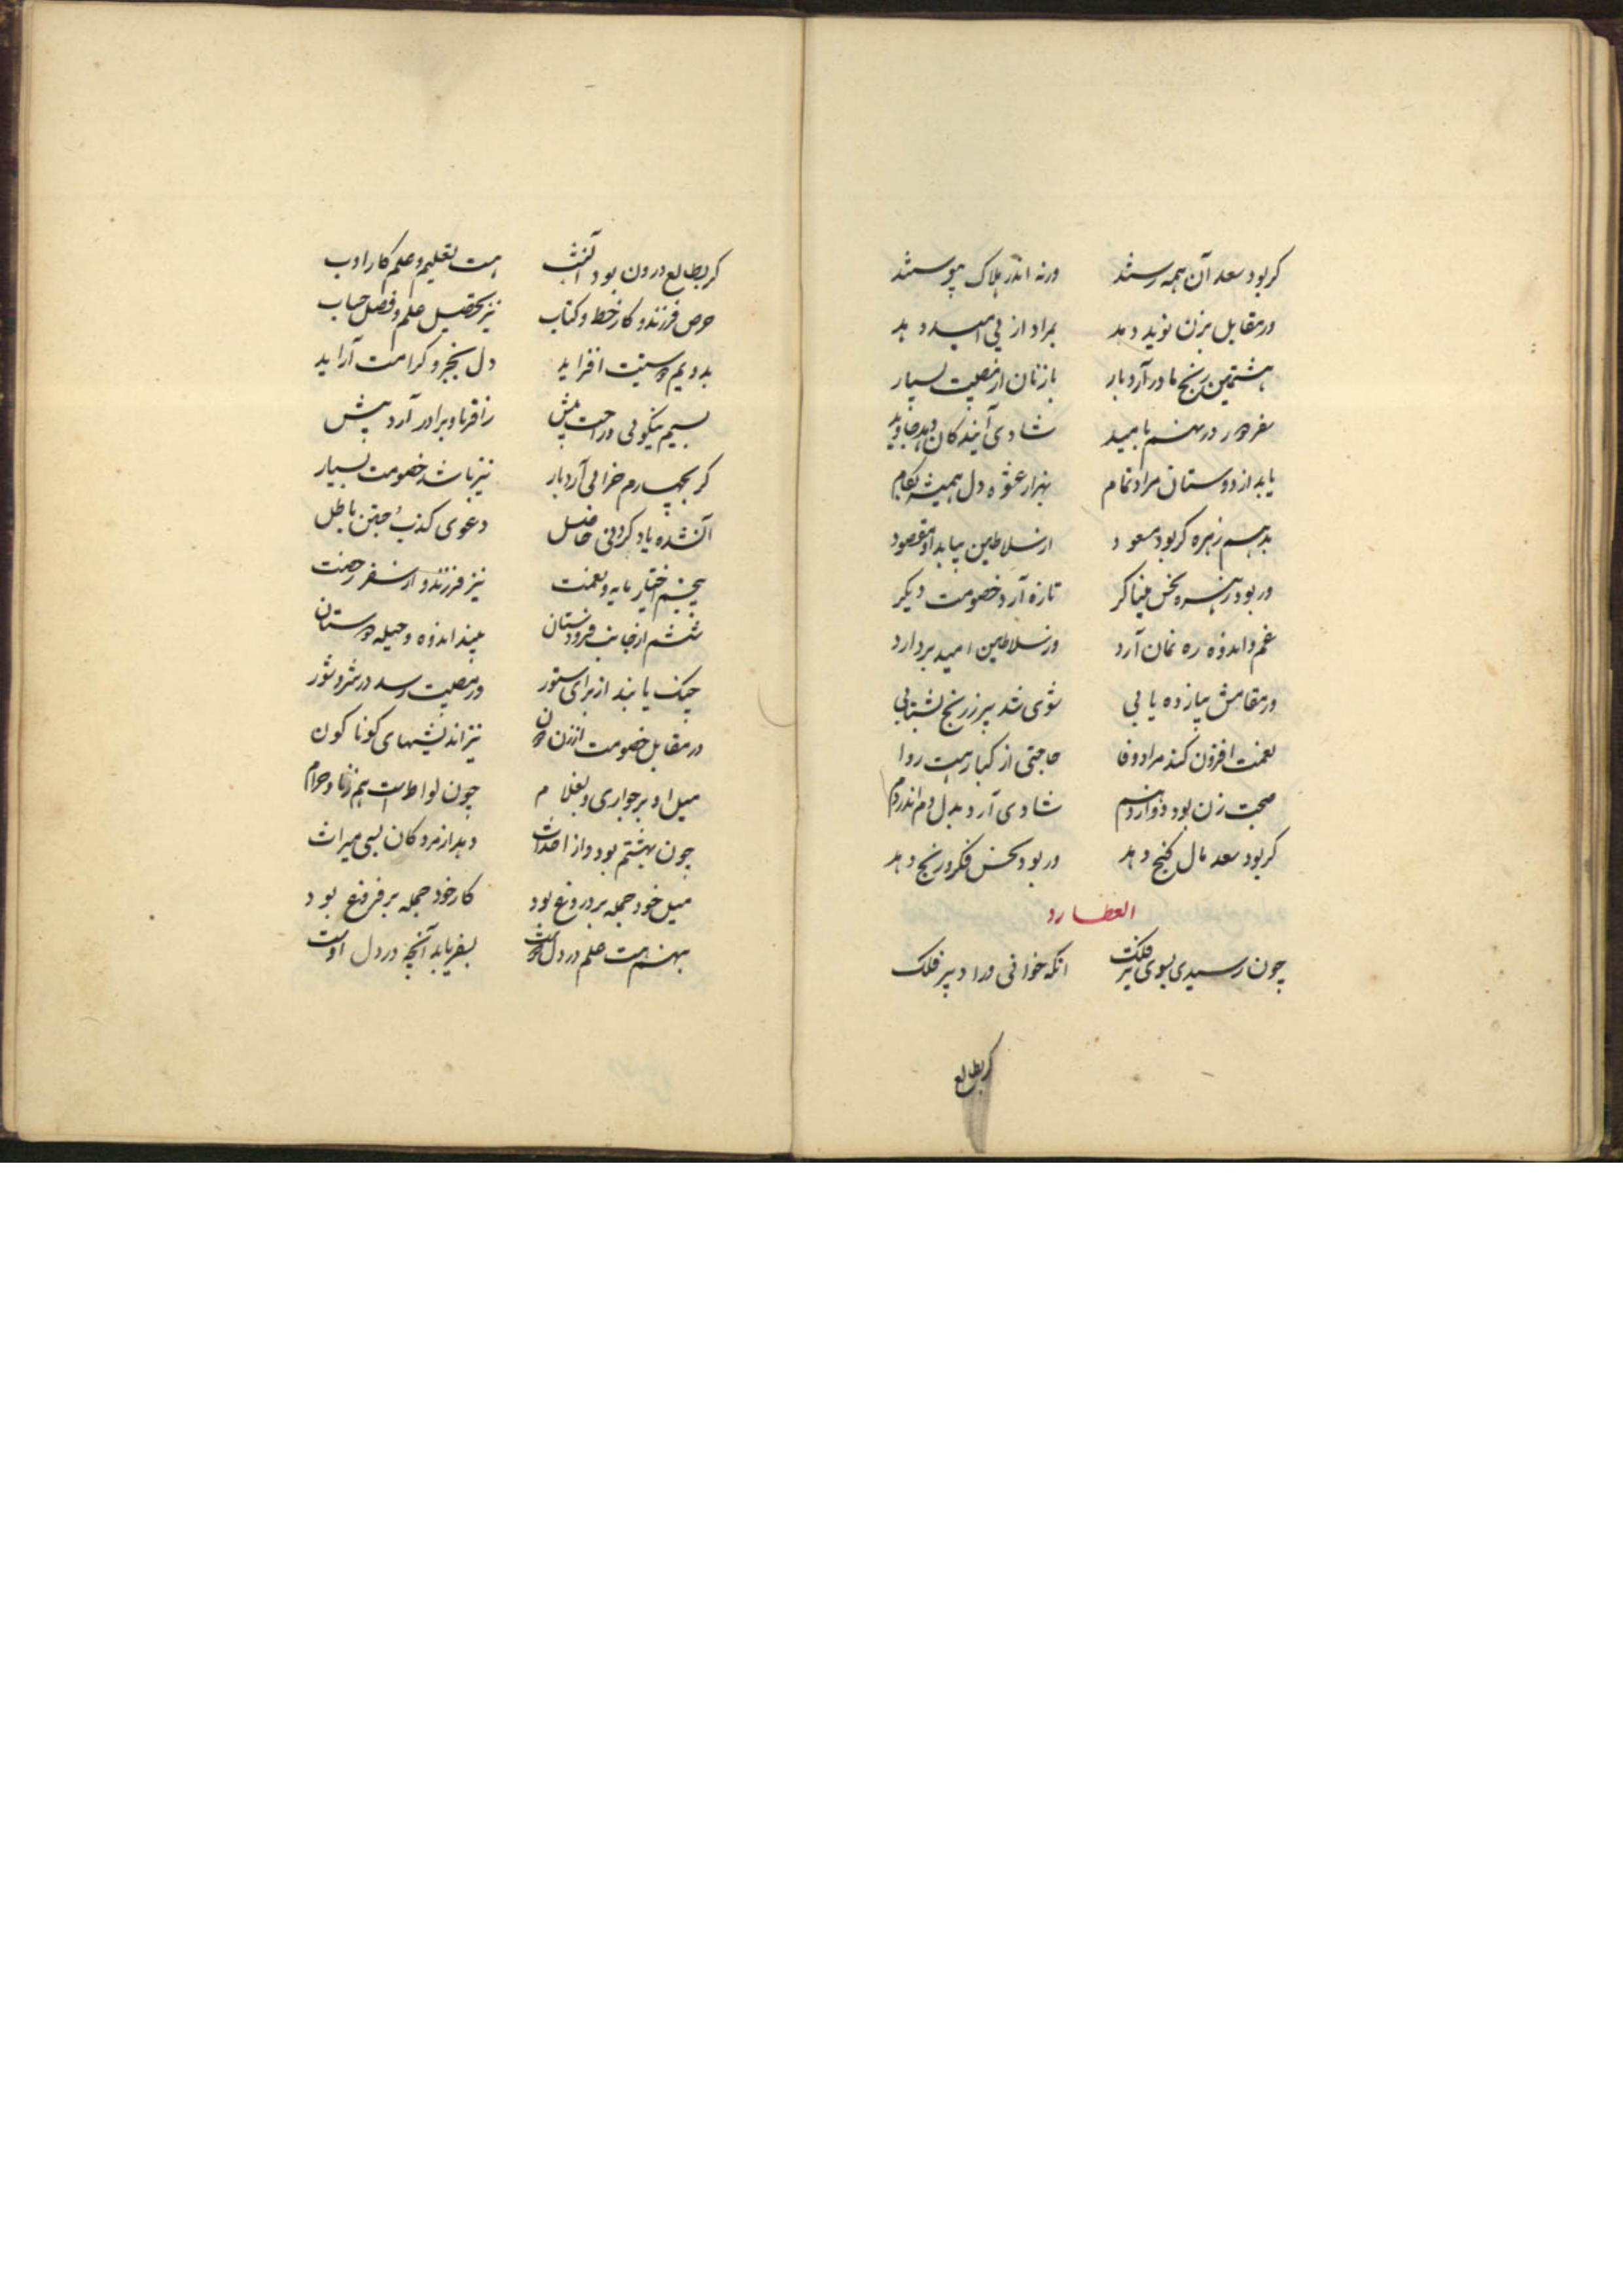 کر بود سعد آن همه رستند ورنه اندر هلاک پیوستند
ور مقابل بزن نوید دهد بمراد از پی امید دهد
هشتمین رنج مادر آرد بار باز نان از مصیبت بسیار
سفر در نهم بامید شادی آیندکان دهد جاوید
یابد از دوستان مراد تمام بهزار عشوه دل همیشه بکام
بدهم زهره کر بود مسعود از سلاطین بیابد او مقصود
ور بود زهره نحس تازه آرد خصومت دیکر
غم و اندوه ره نمان آرد وز سلاطین امید بردارد
ور مقامش بیازده یابی شوی شد بر ز رنج بشتابی
نعمت افزون کند مراد وفا حاجتی از کبار هست روا
صحبت زن بود دوازدهم شادی آرد بدل دم اندر دم
کر بود سعد مال کنج دهد ور بود نحس فکر و رنج دهد
العطارد
چون رسیدی بسوی تیر فلک انکه خوانی ورا دبیر فلک
کر بطالع
کر بطالع درون بود آنشب هست تعلیم و علم کار ادب
حرص فرزند و کار خط و کتاب نیز تحصیل علم و فضل حساب
بدویم افزاید دل بخیر و کرامت آراید
بسیم نیکوئی و راحت بیش ز اقربا و برادر آرد پیش
کر بچهارم خرابی آرد بار نیز باشد خصومت بسیار
آنشده یاد کردنی حاصل دعوی کذب جستن باطل
پنجم اختیار مایه و نعمت نیز فرزند و از سفر رحمت
ششم از جانب فرودستان بیند اندوه و حیله دستان
جنک یابند از برای ستور ور مصیبت رسد در شر و شور
در مقابل خصومت از زن نیز اندیشهای کوناکون
میل او بر جواری و بغلام چون لواط است هم زنا و حرام
چون بهشتم بود واز احداث دهد از مردکان بسی میراث
میل خود جمله بر دروغ بود کار خود جمله بر فروغ بود
بنهم هست علم در دل بسفر یابد آنچه در دل اوست